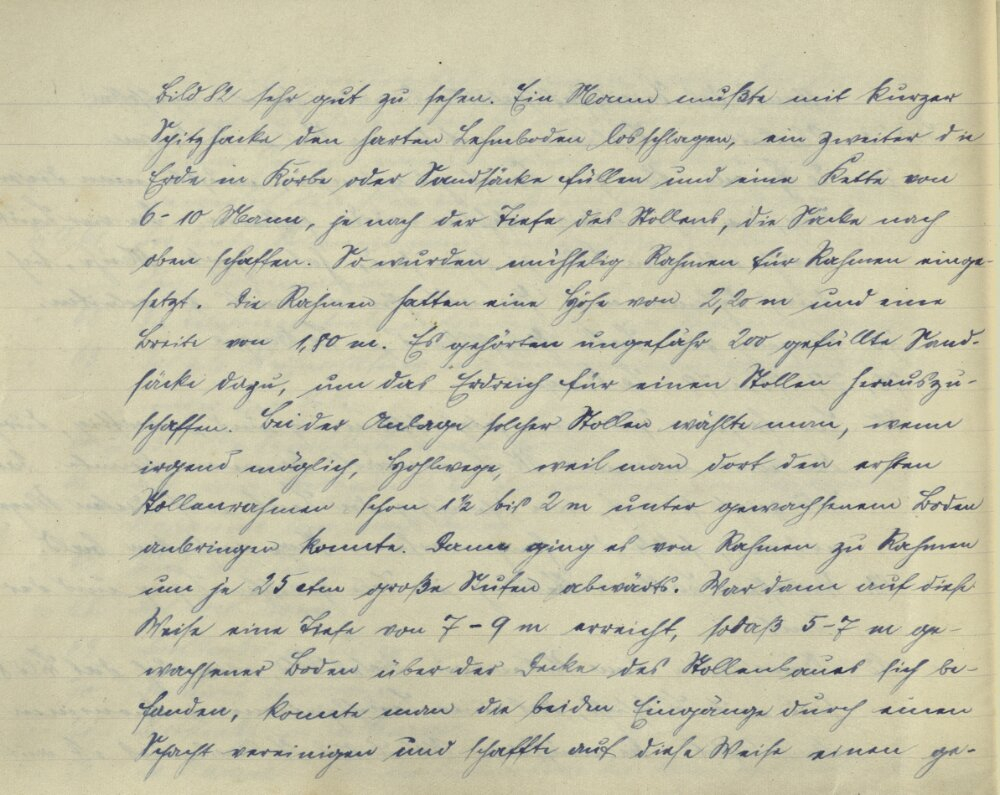 Bild 82 sehr gut zu sehen. Ein Mann mußte mit kurzer
Spitzhacke den harten Lehmboden losschlagen, ein zweiter die
Erde in Körbe oder Sandsäcke füllen und eine Kette von
6-10 Mann, je nach der Tiefe des Stollens, die Säcke nach
oben schaffen. So wurden mühselig Rahmen für Rahmen einge-
setzt. Die Rahmen hatten eine Höhe von 2,20 m und eine
Breite von 1,80 m. Es gehörten ungefähr 200 gefüllte Sand-
säcke dazu, um das Erdreich für einen Stollen herauszu-
schaffen. Bei der Anlage solcher Stollen wählte man, wenn
irgend möglich, Hohlwege, weil man dort den ersten
Stollenrahmen schon 1½ bis 2 m unter gewachsenem Boden
anbringen konnte. Dann ging es von Rahmen zu Rahmen
um je 25 ctm große Stufen abwärts. War dann auf diese
Weise eine Tiefe von 7-9 m erreicht, sodaß 5-7 m ge-
wachsener Boden über der Decke des Stollenbaues sich be-
fanden, konnte man die beiden Eingänge durch einen
Schacht vereinigen und schaffte auf diese Weise einen ge-